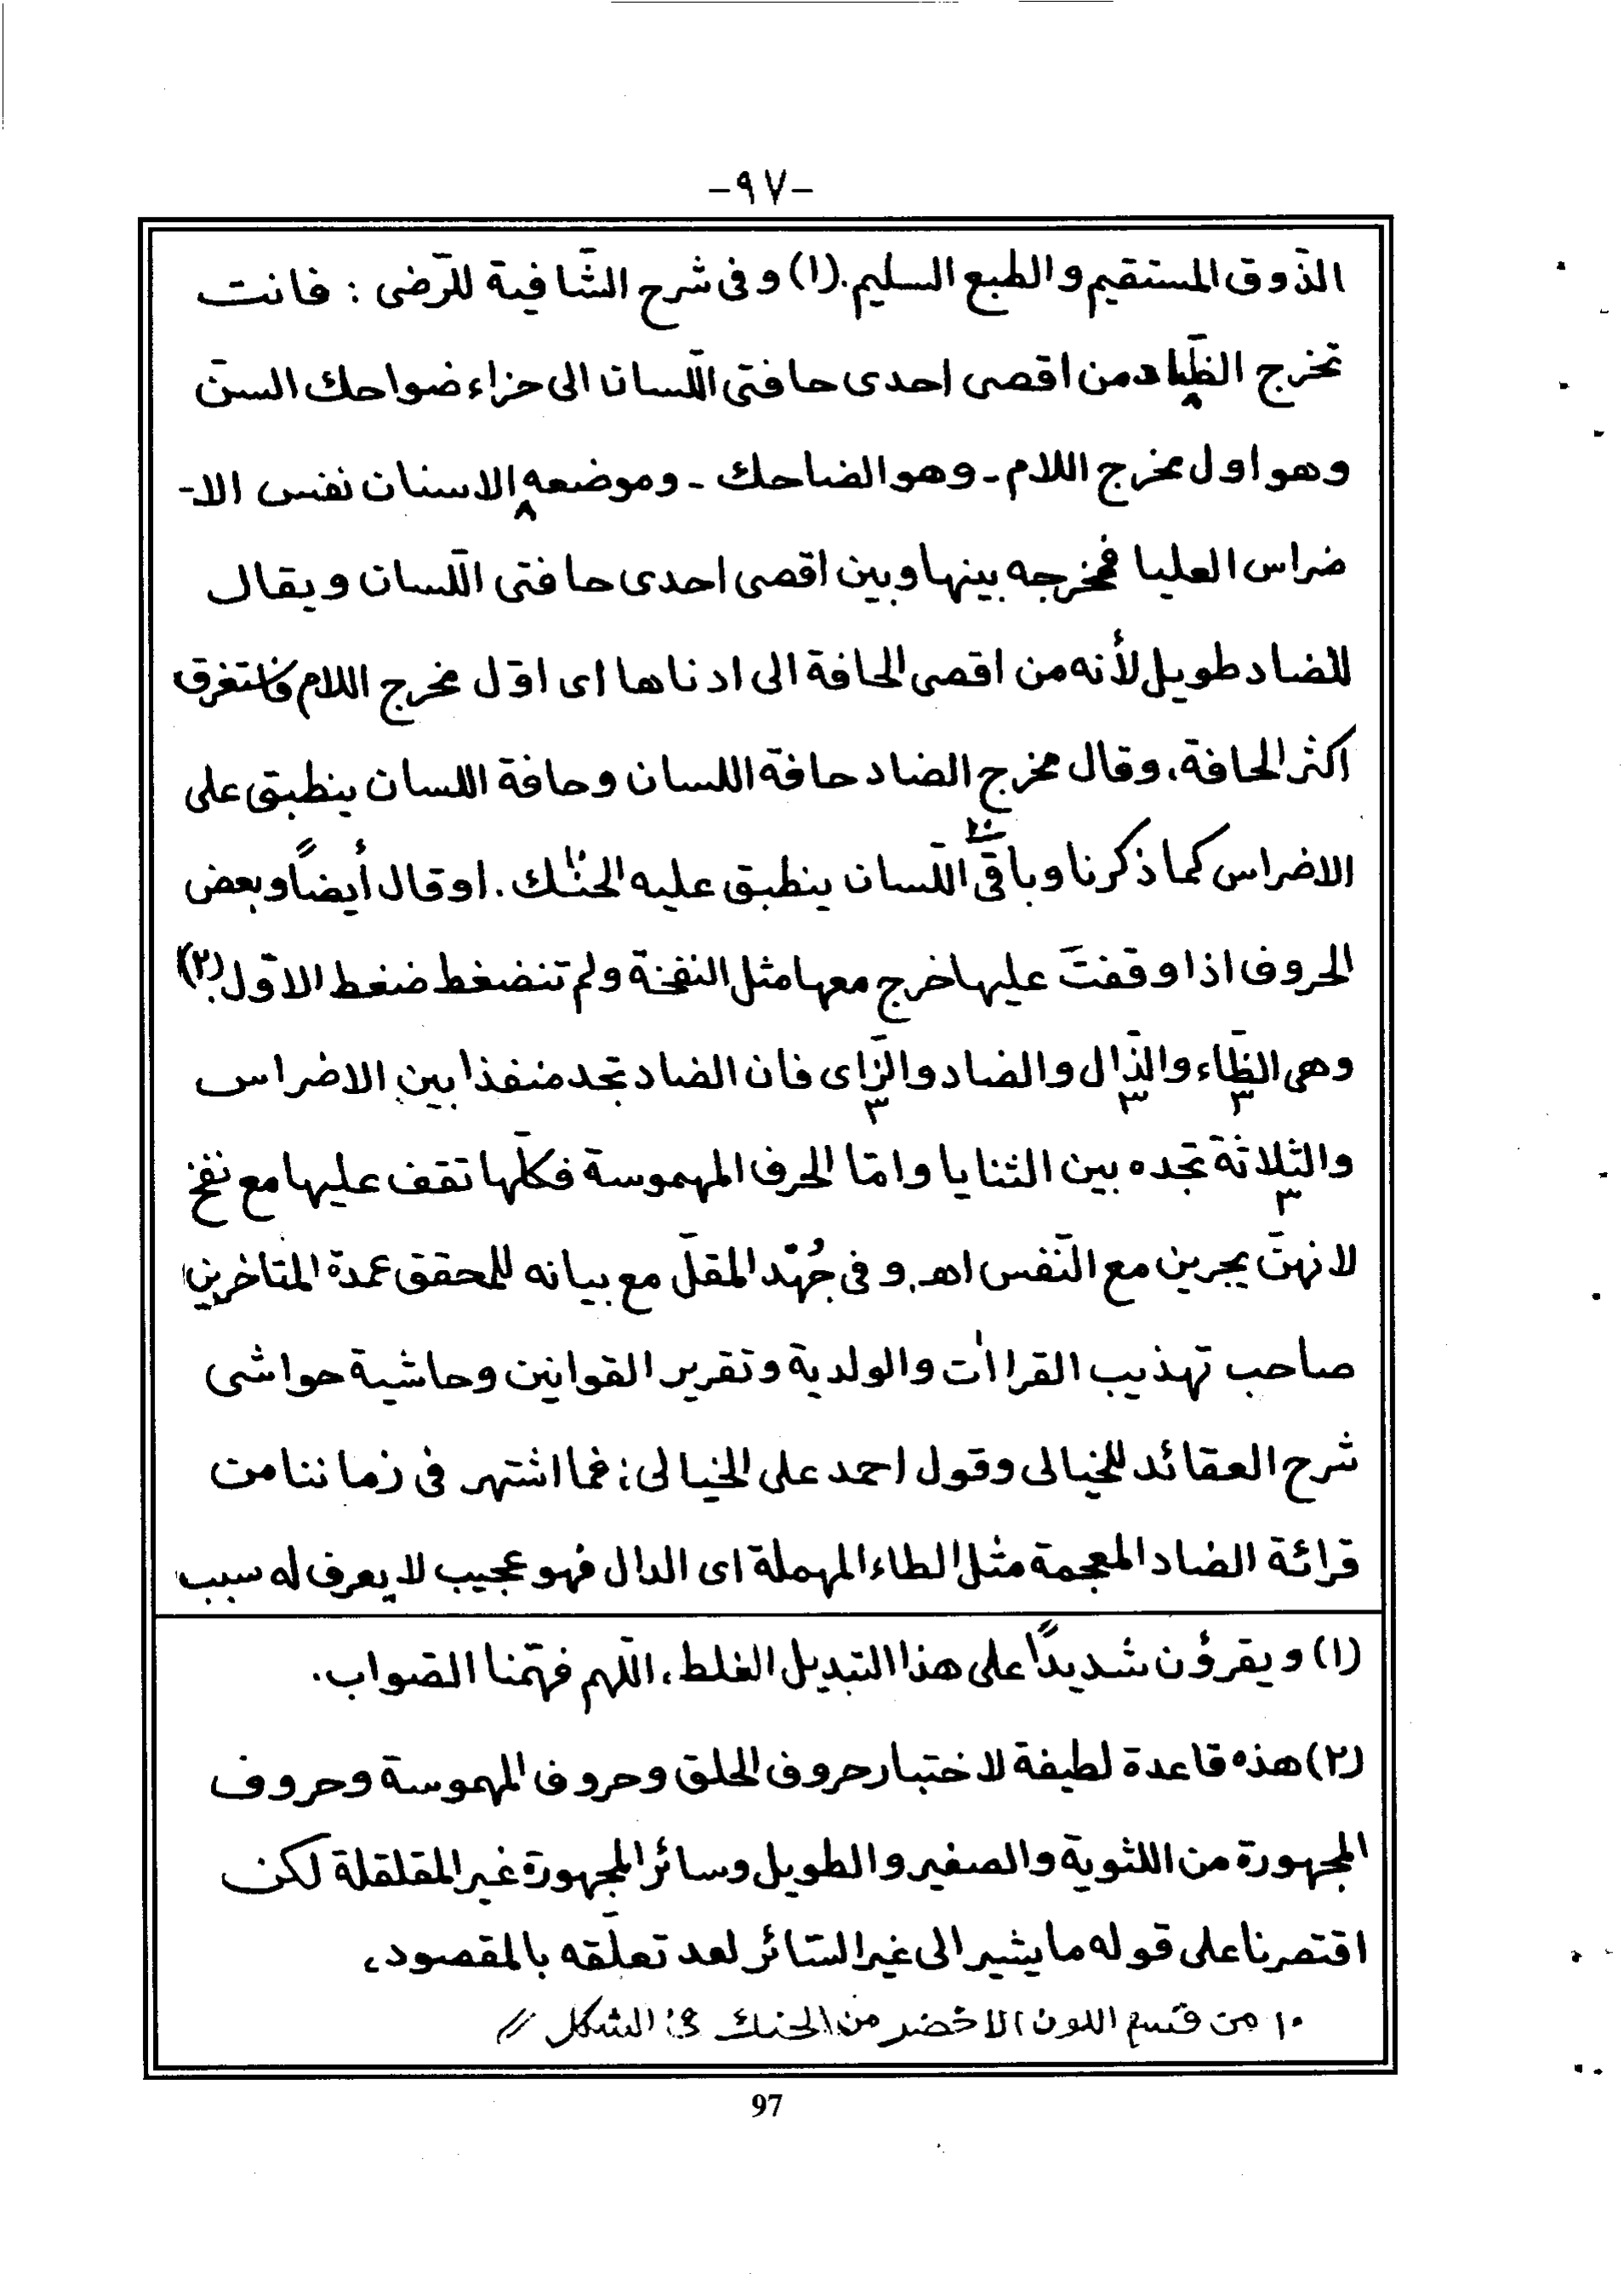 -٩٧-
الذّوق المستقيم والطبع السليم.(١) و فى شرح الشّافية للرّضى : فانت
تخرج الضّاد من اقصى احدى حافتى اللّسان الى حزاء ضواحك السنّ
وهو اول مخرج اللام - وهو الضاحك - وموضعه الاسنان نفس الا-
ضراس العليا فمخرجه بينها وبين اقصى احدى حافتى اللّسان ويقال
للضاد طويل لأنه من اقصى الحافة الى ادناها اى اوّل مخرج اللام فاستغرق
اكثر الحافة، وقال مخرج الضاد حافة اللسان وحافة اللسان ينطبق على
الاضراس كما ذكرنا وباقى اللّسان ينطبق عليه الحنك . ا وقال أيضاً وبعض
الحروف اذا وقفتَ عليها خرج معها مثل النفخة ولم تنضغط ضغط الاوّل.(٢)
وهى الظّاء والذّال والضاد والزّاى فان الضاد تجد منفذا بين الاضراس
٣ ٣ ٣
والثلاثة تجده بين الثنايا وامّا الحرف المهموسة فكلّها تقف عليها مع نفخ
٣
لانهنّ يجرين مع النّفس اهـ. و فى جُهْد المقلّ مع بيانه للمحقق عمدة المتاخرين
صاحب تهذيب القراات والولدية وتقرير القوانين وحاشية حواشى
شرح العقائد للخيالى وقول احمد على الخيالى: فما اشتهر فى زماننا من
قرائة الضاد المعجمة مثل الطاء المهملة اى الدال فهو عجيب لا يعرف له سبب
(١) ويقرؤن شديداً على هذا التبديل الغلط، اللّهم فهّمنا الصّواب.
(٢) هذه قاعدة لطيفة لاختبار حروف الحلق وحروف المهموسة وحروف
المجهورة من اللثوية والصفير والطويل وسائر المجهورة غير المقلقلة لكن
اقتصرنا على قوله ما يشير الى غير السّائر لعد تعلّقه بالمقصود،
١٠ من قسم اللون الاخضر من الحنك فى الشكل //
97